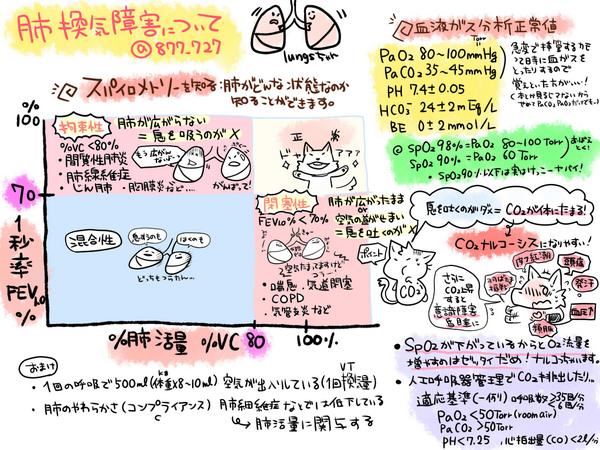 肺換気障害について
@877_727
lungsちゃん
スパイロメトリーを知る:肺がどんな状態なのか
知ることができます。
血液ガス分析正常値
Torr
PaO2 80~100mmHg
PaCO2 35~45mmHg
PH 7.4±0.05
HCO3⁻ 24±2mEq/L
BE 0±2mmol/L
@SpO2 98%=PaO2 80~100Torr
SpO2 90%=PaO2 60Torr
%
100
70
1秒率
FEV1.0
拘束性
肺が広がらない
=息を吸うのが×
%VC<80%
・間質性肺炎
・肺線維症
・じん肺・胸膜炎など…
がんばって!
ドヤァァァ
混合性
息すうのも
はくのも
どっちもつらたん…
閉塞性
肺が広がったまま
or
空気の道がせまい
=息を吐くのが×
FEV1.0%<70%
・喘息・気道閉塞
・COPD
・気管支炎など
%肺活量 %VC 80 100%
%
息を吐くのがダメ=CO2が体にたまる!
CO2ナルコーシスになりやすい!
ポイント
CO2
さらに
CO2上昇
すると
意識障害
昏睡に
頭痛
発汗
血圧↑
・SpO2が下がっているからとO2流量を
増やすのはゼッタイだめ!ナルコちゃいます。
・人工呼吸器管理でCO2排出したり…
適応基準(一例)呼吸数>35回/分
<5回/分
PaO2<50Torr(room air)
PaCO2>50Torr
PH<7.25、心拍出量(CO)<2L/分
おまけ
・1回の呼吸で500ml(体重×8~10ml)空気が出入りしている(1回換気量)
kg
VT
・肺のやわらかさ(コンプライアンス)肺線維症などでは低下している
C
↳肺活量に関与する